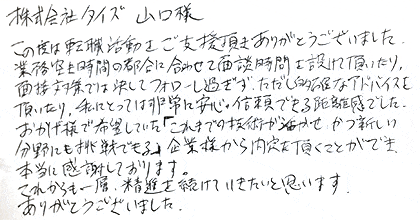 株式会社タイズ 山口様
この度は転職活動をご支援頂きありがとうございました。
業務空き時間の都合に合わせて面談時間を設けて頂いたり、
面接対策では決してフォローし過ぎず、ただし的確なアドバイスを
頂いたり、私にとっては非常に安心、信頼できる距離感でした。
おかげ様で希望していた「これまでの技術が活かせ、かつ新しい
分野にも挑戦できる」企業様から内定を頂くことができ
本当に感謝しております。
これからも一層、精進を続けていきたいと思います。
ありがとうございました。